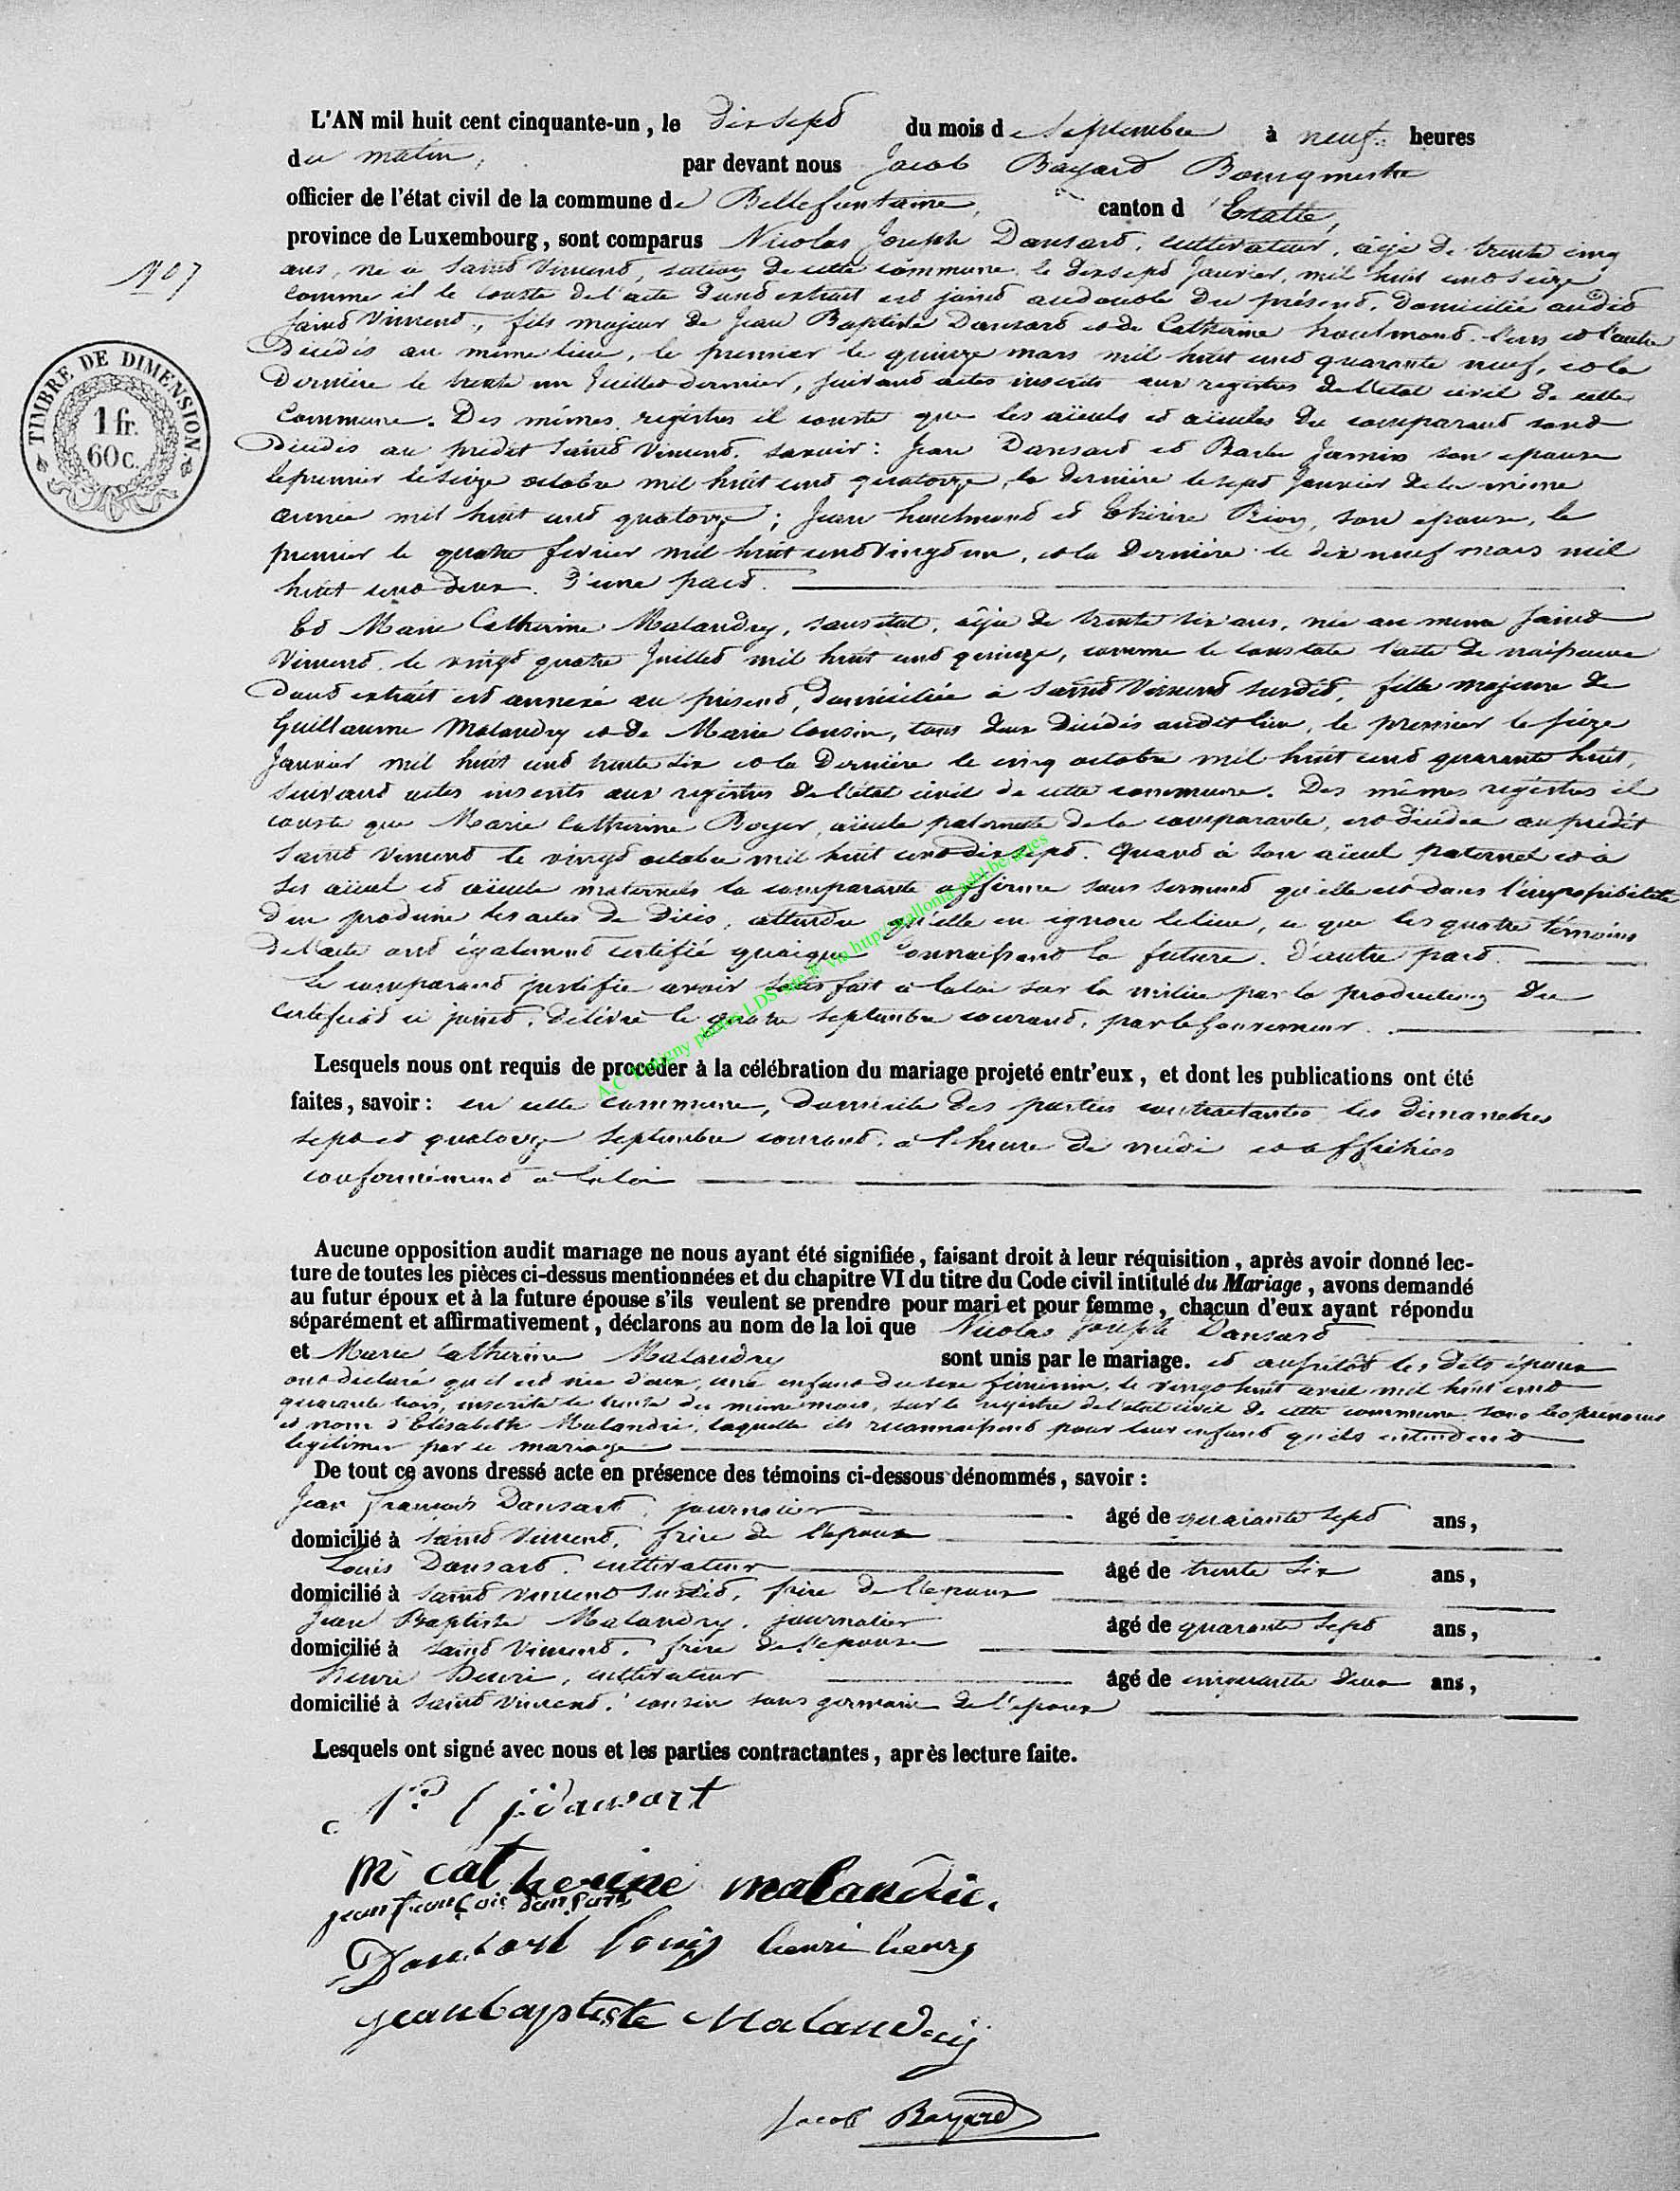 L'AN mil huit cent cinquante-un, le dix sept du mois de Septembre à neuf heures
du matin, par devant nous Jacob Bayard Bourgmestre
officier de l'état civil de la commune de Bellefontaine, canton d'Etalle,
province de Luxembourg, sont comparus Nicolas Joseph Dansard, cultivateur, âgé de trente cinq
N° 7
ans, né à Saint Vincent, section de cette commune, le dix sept Janvier, mil huit cent seize
comme il le conste de l'acte dont extrait est joint au double du présent, domicilié audit
Saint Vincent, fils majeur de Jean Baptiste Dansard et de Catherine houlmond, l'un et l'autre
Décédés au même lieu, le premier le quinze mars mil huit cent quarante neuf, et la
Dernière le trente un Juillet dernier, suivant actes inscrits aux registres de l'état civil de cette
Commune. Des mêmes registres il conste que les aïeuls et aïeules du comparant sont
Décédés au prédit Saint Vincent, savoir : Jean Dansard et Barbe Jamin son épouse
le premier le seize octobre mil huit cent quatorze, la dernière le sept Janvier de la même
année mil huit cent quatorze ; Jean houlmond et thérèse Rion, son épouse, le
premier le quatre février mil huit cent vingt un, et la dernière le dix neuf mars mil
huit cent deux. D'une part.
Et Marie Catherine Malandry, sans état, âgée de trente six ans, née au même Saint
Vincent, le vingt quatre Juillet mil huit cent quinze, comme le constate l'acte de naissance
dont extrait est annexé au présent, domiciliée à Saint Vincent susdit, fille majeure de
Guillaume Malandry et de Marie Cousin, tous deux décédés audit lieu, le premier le seize
Janvier mil huit cent trente six et la dernière le cinq octobre mil huit cent quarante huit,
suivant actes inscrits aux registres de l'état civil de cette commune. Des mêmes registres il
conste que Marie Catherine Boyer, aïeule paternelle de la comparante, est décédée au prédit
Saint Vincent le vingt octobre mil huit cent dix sept. Quant à son aïeul paternel et à
ses aïeul et aïeule maternels la comparante affirme sous serment qu'elle est dans l'impossibilité
d'en produire les actes de décès, attendu qu'elle en ignore le lieu, ce que les quatre témoins
de l'acte ont également certifié quoique connaissant la future. D'autre part.
Le comparant justifie avoir satisfait à la loi sur la milice par la production du
certificat ci joint, délivré le quatre septembre courant, par le Gouverneur.
A.C. Tintigny photos LDS site @ via http://wallonia.asbl.be/actes
Lesquels nous ont requis de procéder à la célébration du mariage projeté entr'eux, et dont les publications ont été
faites, savoir : en cette commune, domicile des parties contractantes les dimanches
sept et quatorze Septembre courant, à l'heure de midi et affichées
conformément à la loi
TIMBRE DE DIMENSION.
1 fr.
60 c.
Aucune opposition audit mariage ne nous ayant été signifiée, faisant droit à leur réquisition, après avoir donné lec-
ture de toutes les pièces ci-dessus mentionnées et du chapitre VI du titre du Code civil intitulé du Mariage, avons demandé
au futur époux et à la future épouse s'ils veulent se prendre pour mari et pour femme, chacun d'eux ayant répondu
séparément et affirmativement, déclarons au nom de la loi que Nicolas Joseph Dansard
et Marie Catherine Malandry sont unis par le mariage. et aussitôt les dits époux
ont déclaré qu'il est née d'eux, une enfant du sexe féminin, le vingt huit avril mil huit cent
quarante trois, inscrite le trente du même mois, sur le registre de l'état civil de cette commune sous les prénoms
et nom d'Elisabeth Malandri, laquelle ils reconnaissent pour leur enfant qu'ils entendent
légitimer par ce mariage
De tout ce avons dressé acte en présence des témoins ci-dessous dénommés, savoir :
Jean François Dansard, journalier âgé de quarante sept ans,
domicilié à Saint Vincent, frère de l'époux
Louis Dansard, cultivateur âgé de trente six ans,
domicilié à Saint Vincent susdit, frère de l'époux
Jean Baptiste Malandry, journalier âgé de quarante sept ans,
domicilié à Saint Vincent, frère de l'épouse
henri henri, cultivateur âgé de cinquante deux ans,
domicilié à Saint Vincent, cousin sous germain de l'époux
Lesquels ont signé avec nous et les parties contractantes, après lecture faite.
j dansart
M catherine malandrie.
jean françois dansart
Dansart louis henri henry
jean baptiste Malandry
Jacob Bayard